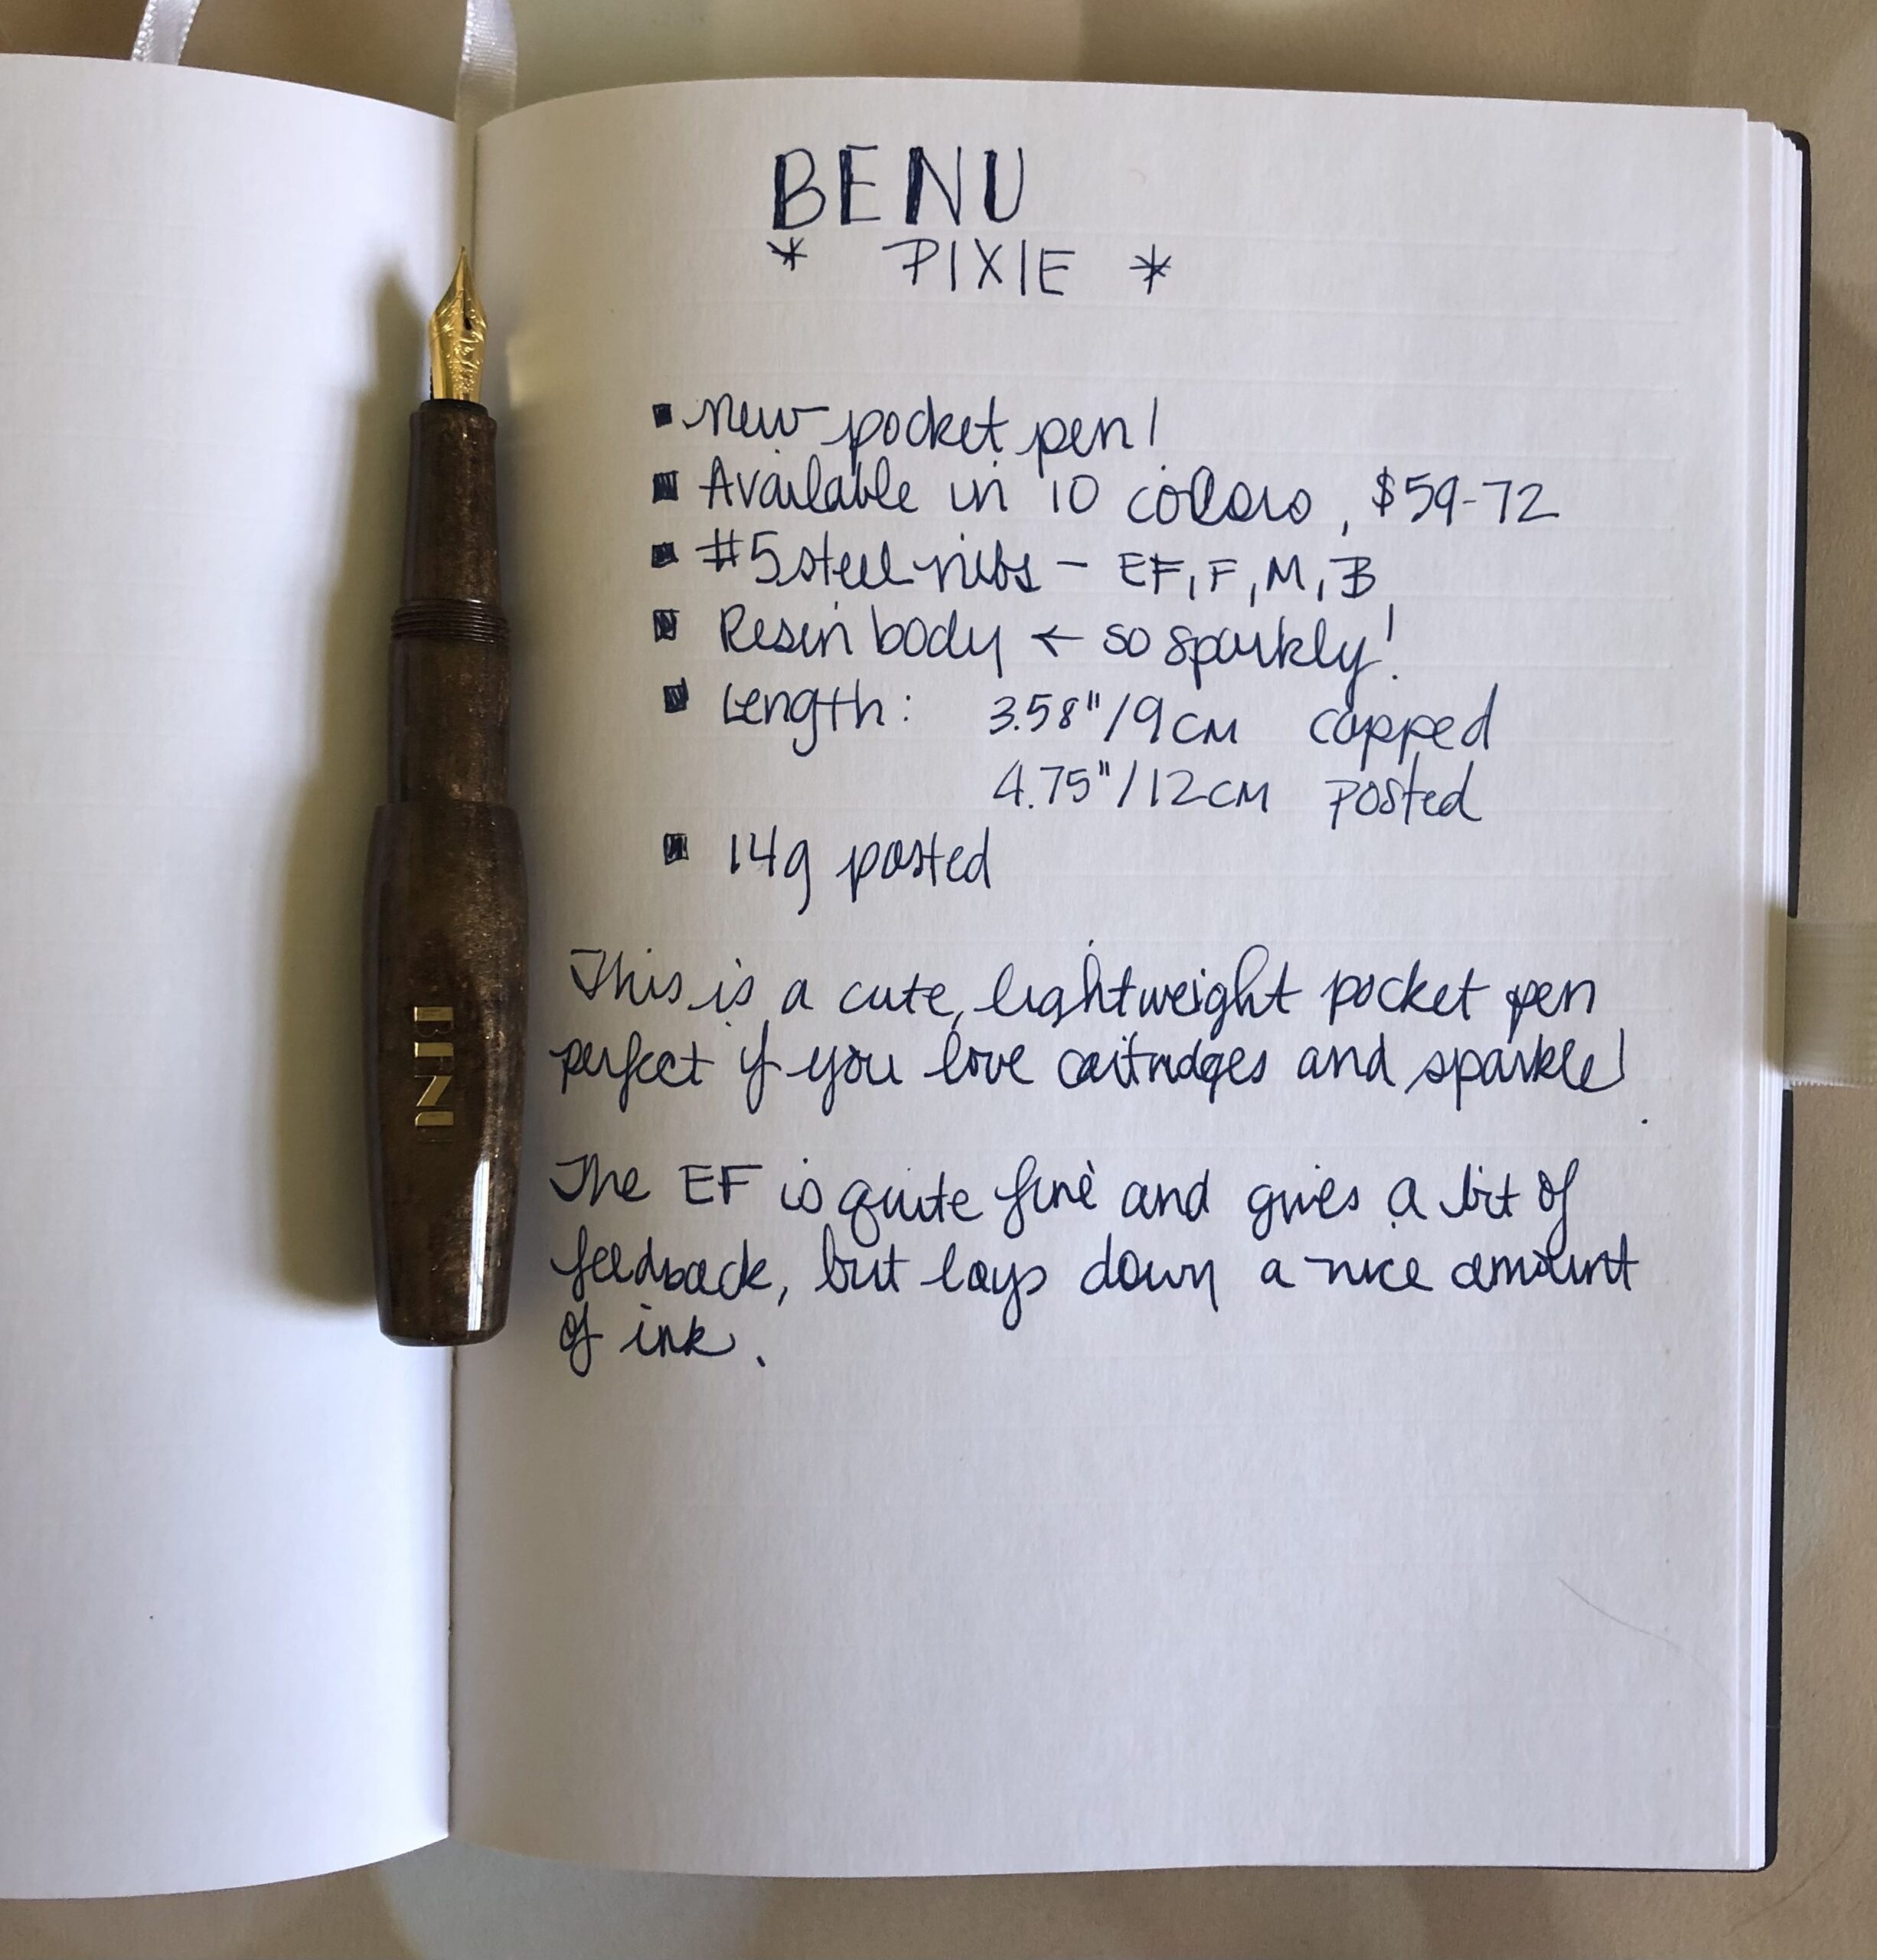 BENU
* PIXIE *
▪ new pocket pen!
▪ Available in 10 colors, $59-72
▪ #5 steel nibs - EF, F, M, B
▪ Resin body ← so sparkly!
▪ Length: 3.58"/9cm capped
4.75"/12cm posted
▪ 14g posted
This is a cute, lightweight pocket pen
perfect if you love cartridges and sparkle!
The EF is quite fine and gives a bit of
feedback, but lays down a nice amount
of ink.
BENU